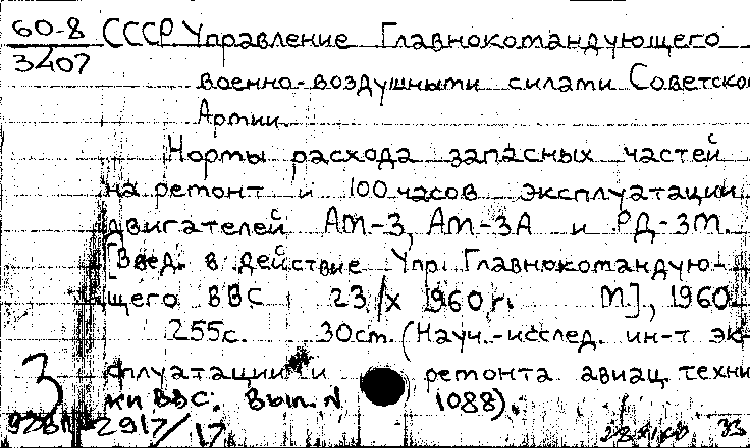 60-8 СССР. Управление Главнокомандующего
3407
военно-воздушными силами Советской
Армии.
Нормы расхода запасных частей
на ремонт и 100 часов эксплуатации
двигателей АМ-3, АМ-3А и РД-3М.
[Введ. в действие Упр. Главнокомандую-
щего ВВС 23/X 1960 г. М], 1960.
255с. 30ст. (Науч.-исслед. ин-т эк-
сплуатации и ремонта авиац. техни
ки ВВС. Вып. N 1088).
3
2917/17
33